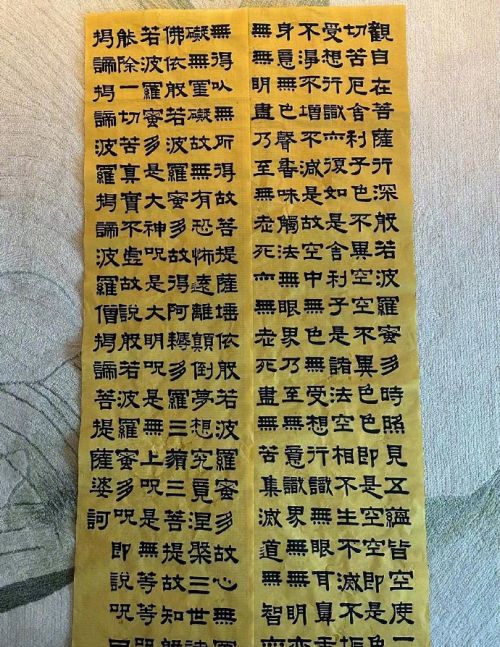 觀自在菩薩行深般若波羅蜜多時照見五蘊皆空度一
切苦厄舍利子色不異空空不異色色即是空空即是色
受想行識亦復如是舍利子是諸法空相不生不滅不垢
不淨不增不減是故空中色無受想行識無眼耳鼻舌
身意無色聲香味觸法無眼界乃至無意識界無無明亦
無無明盡乃至無老死亦無老死盡無苦集滅道無智亦
無得以無所得故菩提薩埵依般若波羅蜜多故心無罣
礙無罣礙故無有恐怖遠離顛倒夢想究竟涅槃三世諸
佛依般若波羅蜜多故得阿耨多羅三藐三菩提故知般
若波羅蜜多是大神呪是大明呪是無上呪是無等等呪
能除一切苦真實不虛故說般若波羅蜜多呪即說呪曰
揭諦揭諦波羅揭諦波羅僧揭諦菩提薩婆訶